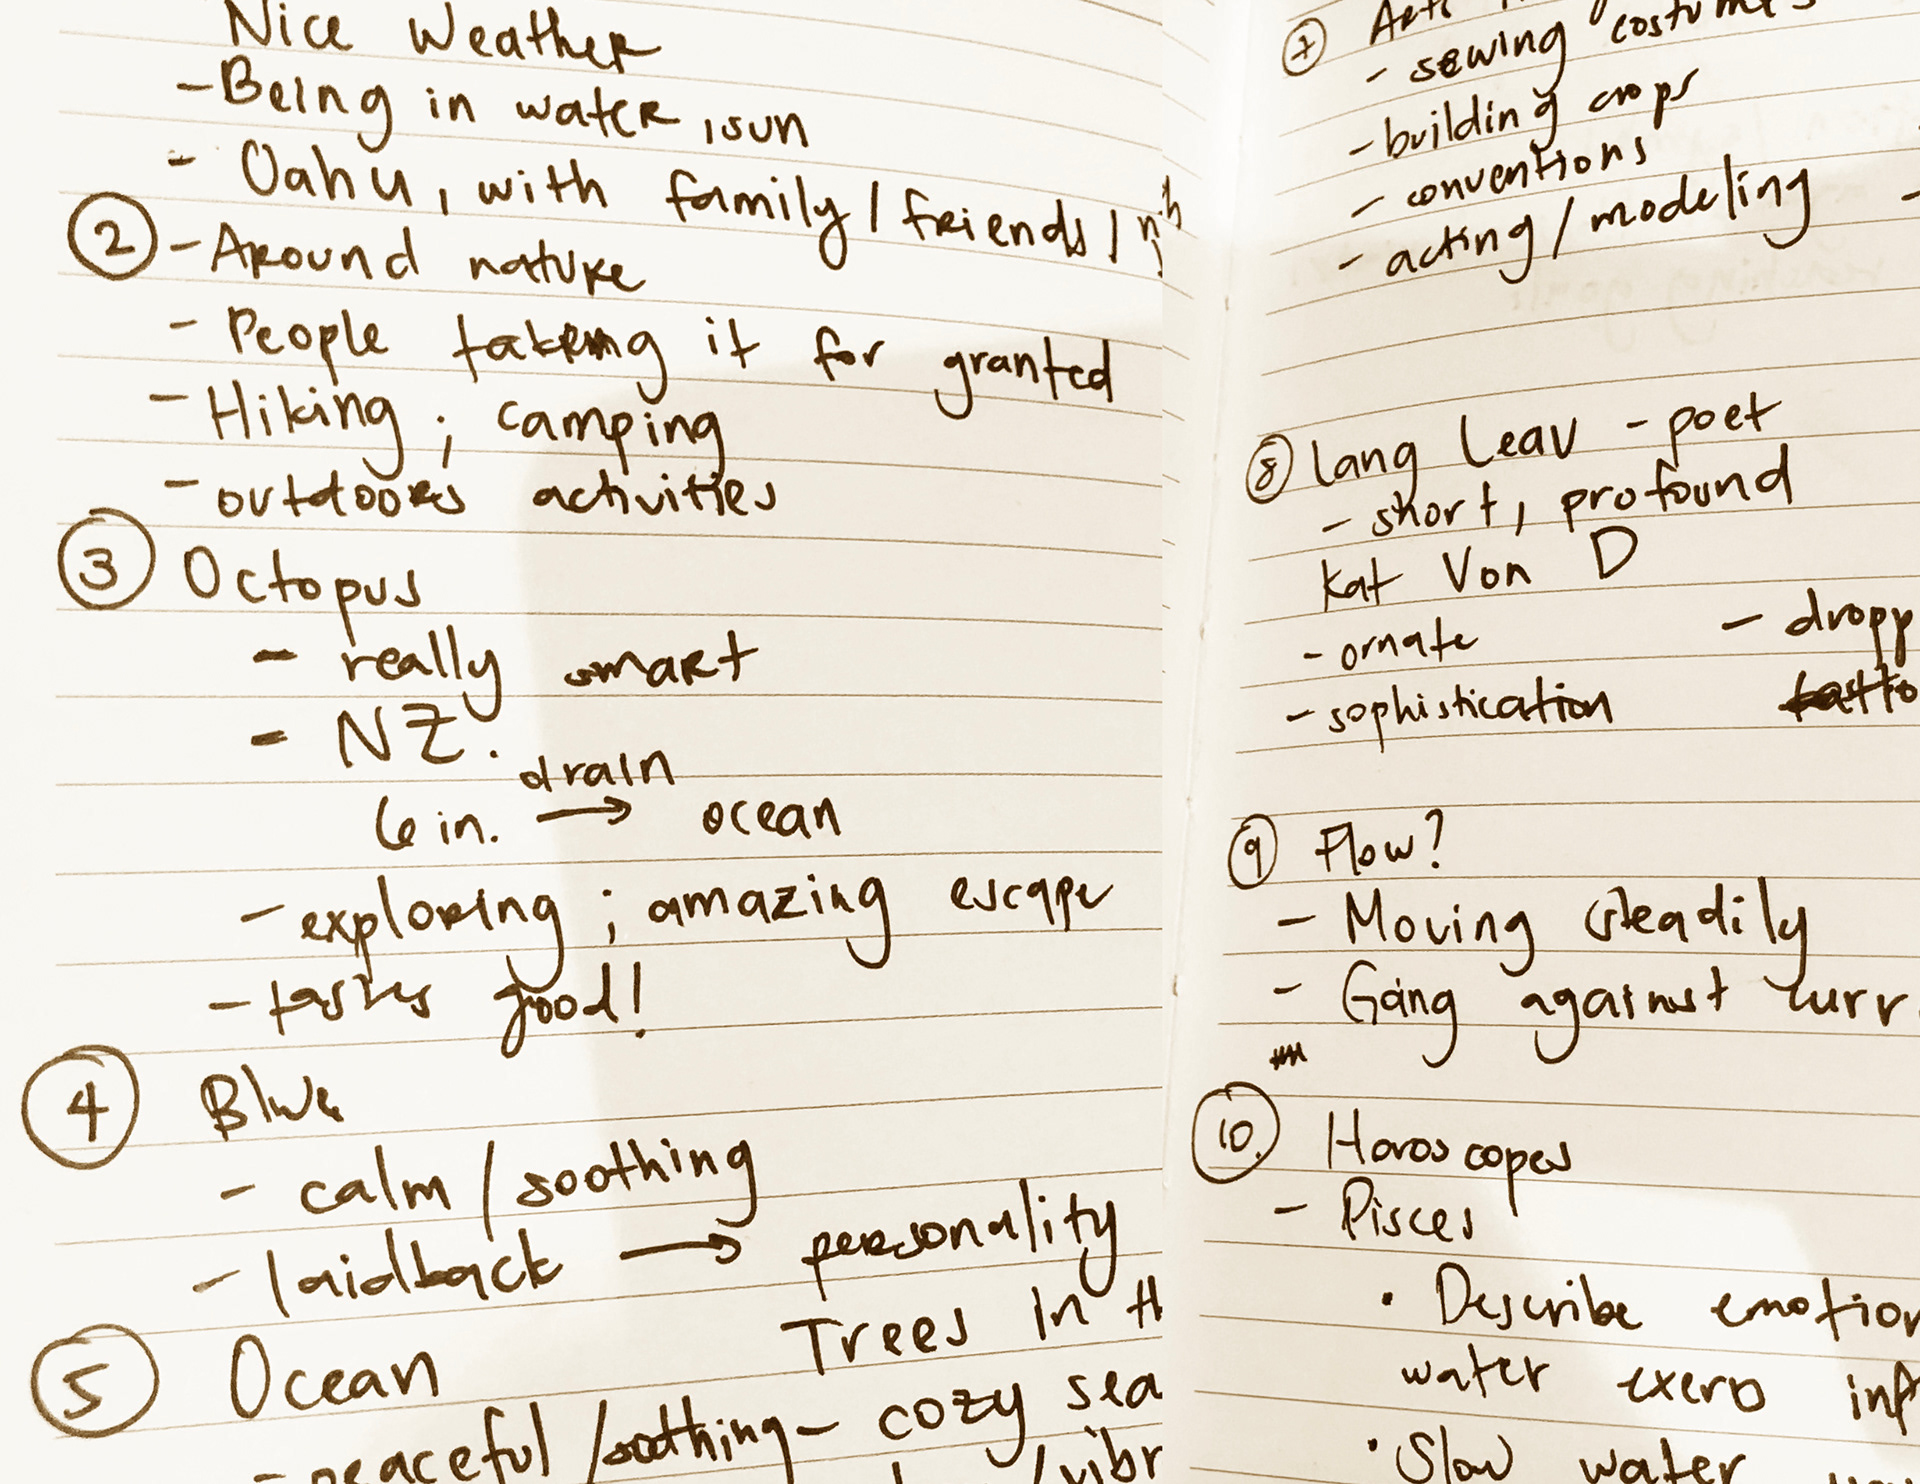 Nice Weather
- Being in water, sun
- Oahu, with family / friends /
② - Around nature
- People taking it for granted
- Hiking ; camping
- outdoors activities
③ Octopus
- really smart
- NZ.
drain
6 in. → ocean
- exploring ; amazing escape
- tastes good!
④ Blue
- calm / soothing
- laidback → personality
⑤ Ocean
Trees In th
- peaceful / soothing - cozy sea
/vibr
⑦ Arts
- sewing costumes
- building crops
- conventions
- acting / modeling -
⑧ Lang Leav - poet
- short, profound
Kat Von D
- ornate - dropp
- sophistication
⑨ Flow?
- Moving steadily
- Going against curr
⑩. Horoscopes
- Pisces
• Describe emotion
water inf
• Slow water